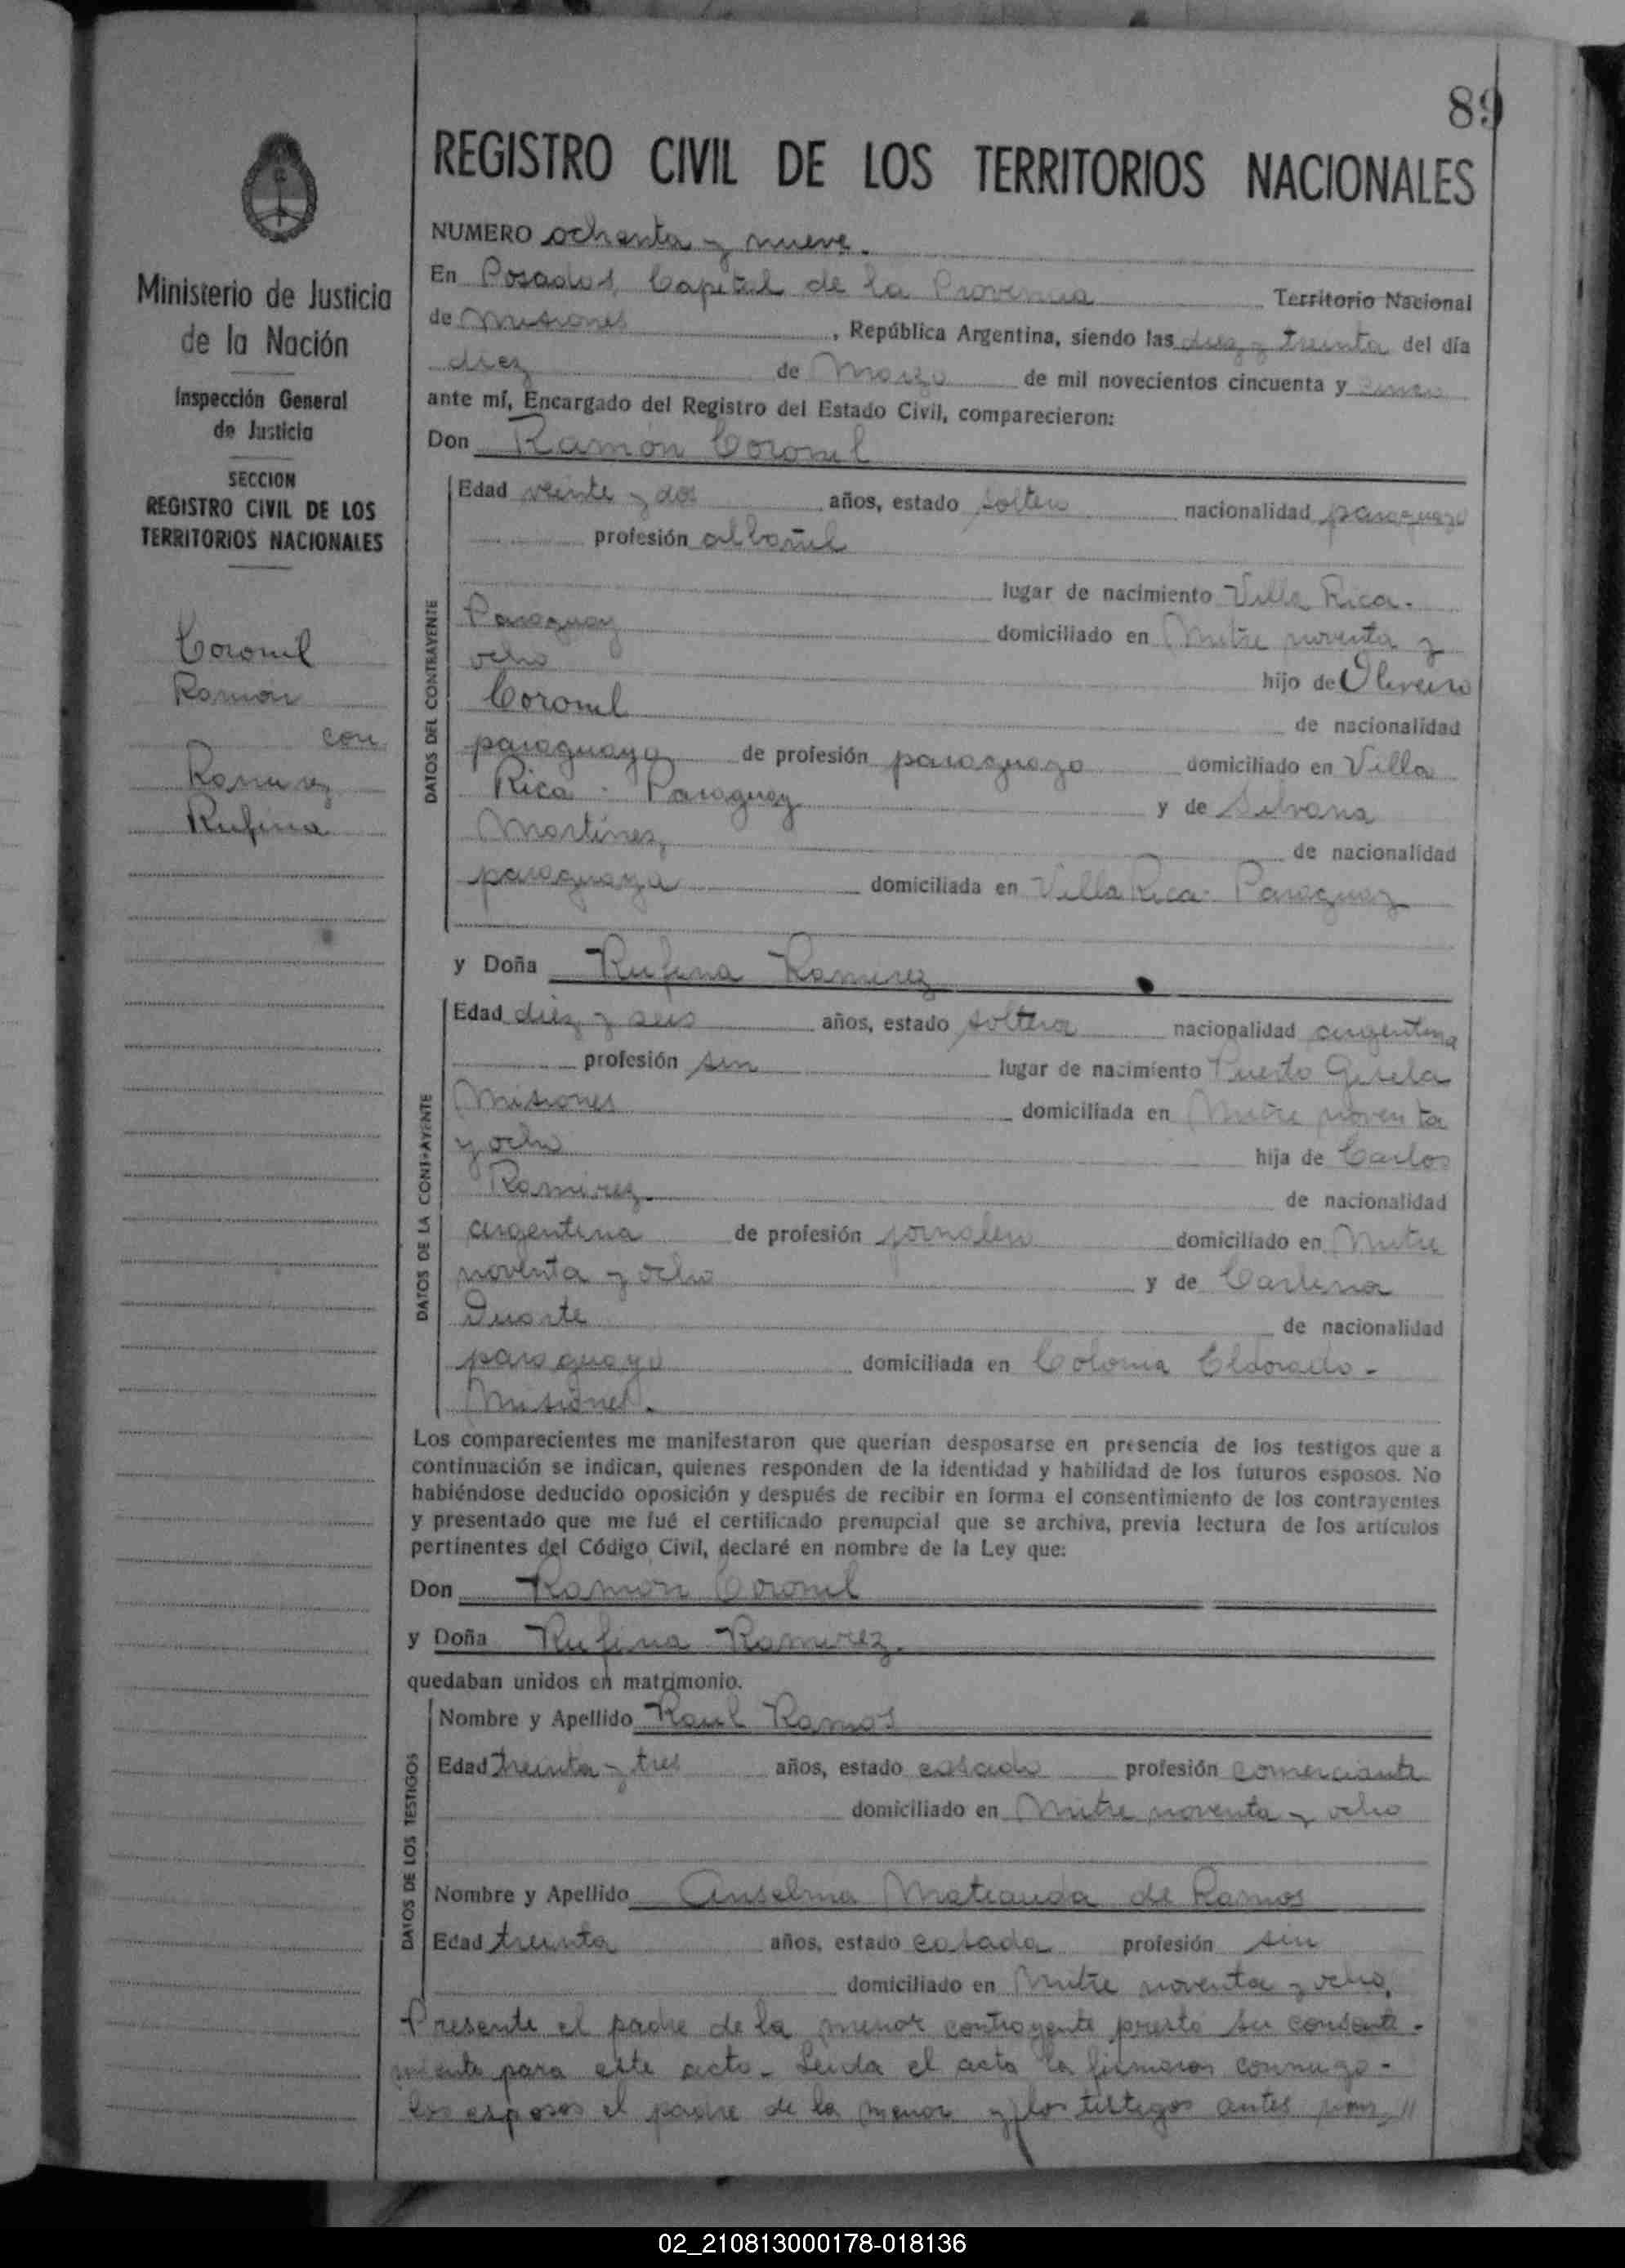 89
Ministerio de Justicia
de la Nación
Inspección General
de Justicia
SECCION
REGISTRO CIVIL DE LOS
TERRITORIOS NACIONALES
Coronil
Ramón
con
Ramirez
Rufina
REGISTRO CIVIL DE LOS TERRITORIOS NACIONALES
NUMERO ochenta y nueve.
En Posadas, Capital de la Provincia Territorio Nacional
de Misiones, República Argentina, siendo las diez y treinta del día
diez de Marzo de mil novecientos cincuenta y cinco
ante mí, Encargado del Registro del Estado Civil, comparecieron:
Don Ramón Coronil
DATOS DEL CONTRAYENTE
Edad veinte y dos años, estado soltero nacionalidad paraguayo
profesión albañil
lugar de nacimiento Villa Rica.
Paraguay domiciliado en Mitre noventa y
ocho hijo de Oliverio
Coronil de nacionalidad
paraguaya de profesión paraguayo domiciliado en Villa
Rica - Paraguay y de Silvana
Martínez de nacionalidad
paraguaya domiciliada en Villa Rica - Paraguay
y Doña Rufina Ramirez
DATOS DE LA CONTRAYENTE
Edad diez y seis años, estado soltera nacionalidad argentina
profesión sin lugar de nacimiento Puerto Gisela
Misiones domiciliada en Mitre noventa
y ocho hija de Carlos
Ramirez de nacionalidad
argentina de profesión jornalero domiciliado en Mitre
noventa y ocho y de
Duarte de nacionalidad
paraguaya domiciliada en Colonia Eldorado -
Misiones.
Los comparecientes me manifestaron que querían desposarse en presencia de los testigos que a
continuación se indican, quienes responden de la identidad y habilidad de los futuros esposos. No
habiéndose deducido oposición y después de recibir en forma el consentimiento de los contrayentes
y presentado que me fué el certificado prenupcial que se archiva, previa lectura de los artículos
pertinentes del Código Civil, declaré en nombre de la Ley que:
Don Ramon Coronil
y Doña Rufina Ramirez.
quedaban unidos en matrimonio.
DATOS DE LOS TESTIGOS
Nombre y Apellido Raul Ramos
Edad treinta y tres años, estado casado profesión comerciante
domiciliado en Mitre noventa y ocho
Nombre y Apellido Anselma Matiauda de Ramos
Edad treinta años, estado casada profesión sin
domiciliado en Mitre noventa y ocho,
Presente el padre de la menor contrayente prestó su consenti-
miento para este acto. Leida el acta la firmaron conmigo -
los esposos el padre de la menor y los testigos antes
02_210813000178-018136